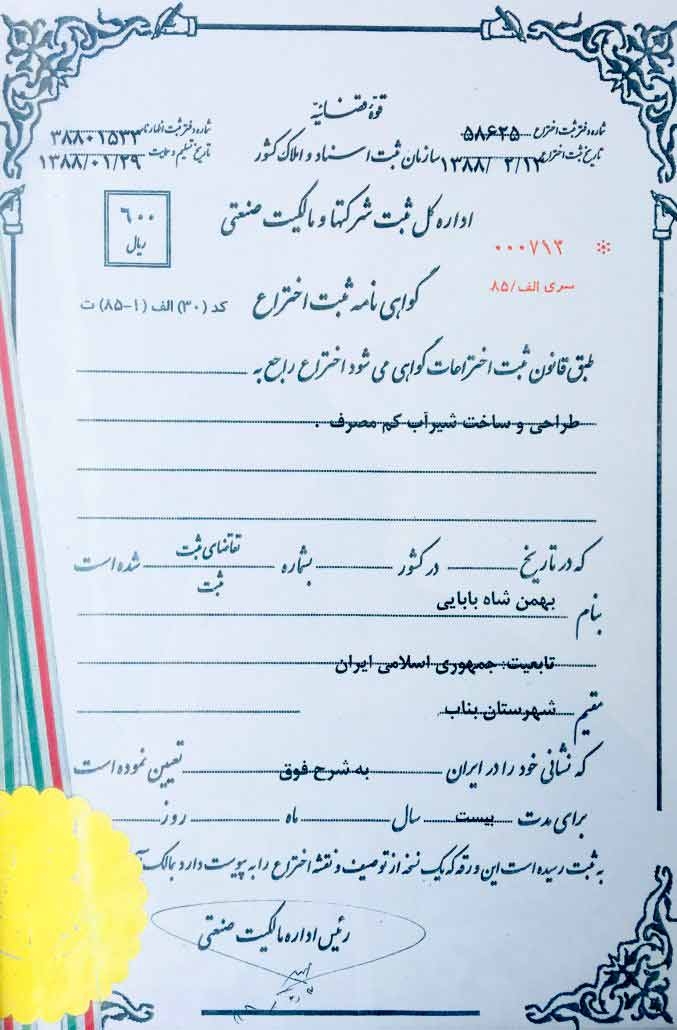 قوهٔ قضائیه
شماره دفتر ثبت اختراع ۵۸۶۲۵
شماره دفتر ثبت اظهارنامه ۳۸۸۰۱۵۳۳
تاریخ ثبت اختراع ۱۳۸۸/ ۲/۱۲
سازمان ثبت اسناد و املاک کشور
تاریخ تسلیم و حمایت ۱۳۸۸/۰۱/۲۹
اداره کل ثبت شرکتها و مالکیت صنعتی
۶۰۰
ریال
۰۰۰۷۱۲ *
سری الف/۸۵
گواهی نامه ثبت اختراع
کد (۳۰) الف (۱-۸۵) ت
طبق قانون ثبت اختراعات گواهی می شود اختراع راجع به
طراحی و ساخت شیرآب کم مصرف .
که در تاریخ در کشور بشماره تقاضای ثبت شده است
ثبت
بنام بهمن شاه بابایی
تابعیت: جمهوری اسلامی ایران
مقیم شهرستان بناب
که نشانی خود را در ایران به شرح فوق تعیین نموده است
برای مدت بیست سال ماه روز
به ثبت رسیده است این ورقه که یک نسخه از توصیف و نقشه اختراع را به پیوست دارد بمالک
رئیس اداره مالکیت صنعتی